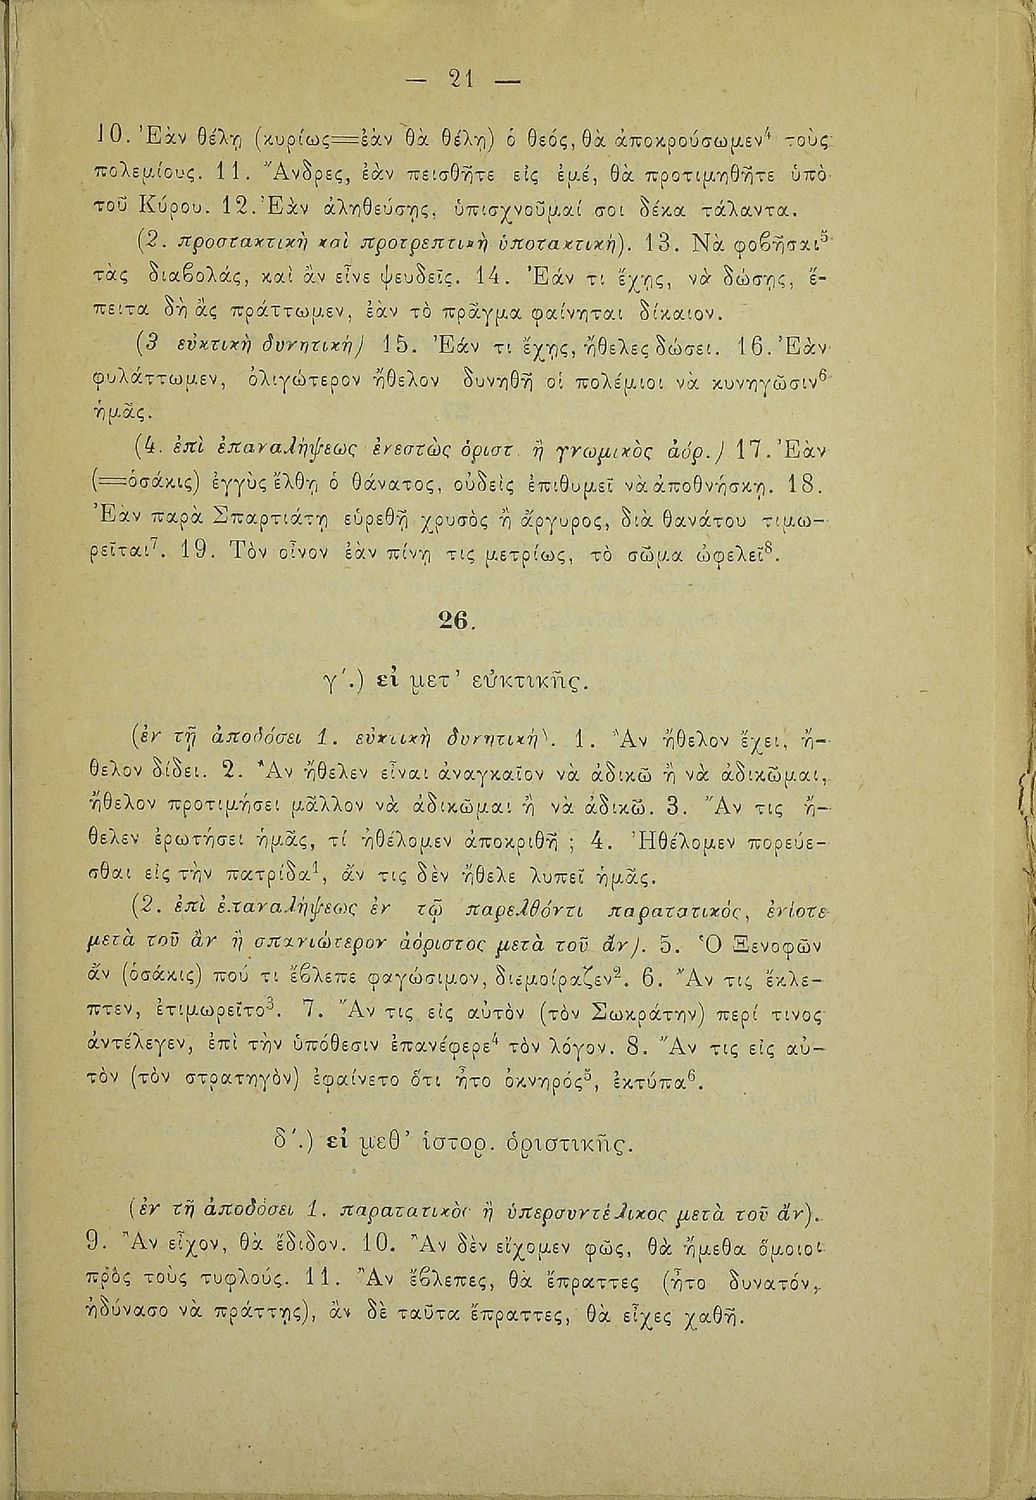 — 21 —
10. Ἐὰν θέλῃ (κυρίως=ἐὰν θὰ θέλῃ) ὁ θεός, θὰ ἀποκρούσωμεν⁴ τοὺς
πολεμίους. 11. Ἄνδρες, ἐὰν πεισθῆτε εἰς ἐμέ, θὰ προτιμηθῆτε ὑπὸ
τοῦ Κύρου. 12. Ἐὰν ἀληθεύσῃς, ὑπισχνοῦμαί σοι δέκα τάλαντα.
(2. προστακτικὴ καὶ προτρεπτικὴ ὑποτακτική). 13. Νὰ φοβῆσαι⁵
τὰς διαβολάς, καὶ ἂν εἶνε ψευδεῖς. 14. Ἐάν τι ἔχῃς, νὰ δώσῃς, ἔ-
πειτα δὴ ἂς πράττωμεν, ἐὰν τὸ πρᾶγμα φαίνηται δίκαιον.
(3 εὐκτικὴ δυνητικὴ) 15. Ἐάν τι ἔχῃς, ἤθελες δώσει. 16. Ἐὰν
φυλάττωμεν, ὀλιγώτερον ἤθελον δυνηθῆ οἱ πολέμιοι νὰ κυνηγῶσιν⁶
ἡμᾶς.
(4. ἐπὶ ἐπαναλήψεως ἐνεστὼς ὁριστ. ἢ γνωμικὸς ἀόρ.) 17. Ἐὰν
(=ὁσάκις) ἐγγὺς ἔλθῃ ὁ θάνατος, οὐδεὶς ἐπιθυμεῖ νὰ ἀποθνήσκῃ. 18.
Ἐὰν παρὰ Σπαρτιάτῃ εὑρεθῆ χρυσὸς ἢ ἄργυρος, διὰ θανάτου τιμω-
ρεῖται⁷. 19. Τὸν οἶνον ἐὰν πίνῃ τις μετρίως, τὸ σῶμα ὠφελεῖ⁸.
26.
γ΄.) εἰ μετ’ εὐκτικῆς.
(ἐν τῇ ἀποδόσει 1. εὐκτικὴ δυνητικὴ). 1. Ἂν ἤθελον ἔχει, ἤ-
θελον δίδει. 2. Ἂν ἤθελεν εἶναι ἀναγκαῖον νὰ ἀδικῶ ἢ νὰ ἀδικῶμαι,
ἤθελον προτιμήσει μᾶλλον νὰ ἀδικῶμαι ἢ νὰ ἀδικῶ. 3. Ἄν τις ἤ-
θελεν ἐρωτήσει ἡμᾶς, τί ἠθέλομεν ἀποκριθῆ ; 4. Ἠθέλομεν πορεύε-
σθαι εἰς τὴν πατρίδα¹, ἄν τις δὲν ἤθελε λυπεῖ ἡμᾶς.
(2. ἐπὶ ἐπαναλήψεως ἐν τῷ παρελθόντι παρατατικός, ἐνίοτε
μετὰ τοῦ ἂν ἢ σπανιώτερον ἀόριστος μετὰ τοῦ ἄν). 5. Ὁ Ξενοφῶν
ἄν (ὁσάκις) πού τι ἔβλεπε φαγώσιμον, διεμοίραζεν². 6. Ἄν τις ἔκλε-
πτεν, ἐτιμωρεῖτο³. 7. Ἄν τις εἰς αὐτὸν (τὸν Σωκράτην) περί τινος
ἀντέλεγεν, ἐπὶ τὴν ὑπόθεσιν ἐπανέφερε⁴ τὸν λόγον. 8. Ἄν τις εἰς αὐ-
τὸν (τὸν στρατηγὸν) ἐφαίνετο ὅτι ἦτο ὀκνηρός⁵, ἐκτύπα⁶.
δ΄.) εἰ μεθ’ ἱστορ. ὁριστικῆς.
(ἐν τῇ ἀποδόσει 1. παρατατικὸς ἢ ὑπερσυντέλικος μετὰ τοῦ ἄν).
9. Ἂν εἶχον, θὰ ἔδιδον. 10. Ἂν δὲν εἴχομεν φῶς, θὰ ἤμεθα ὅμοιοι
πρὸς τοὺς τυφλούς. 11. Ἂν ἔβλεπες, θὰ ἔπραττες (ἦτο δυνατόν,
ἠδύνασο νὰ πράττῃς), ἂν δὲ ταῦτα ἔπραττες, θὰ εἶχες χαθῆ.